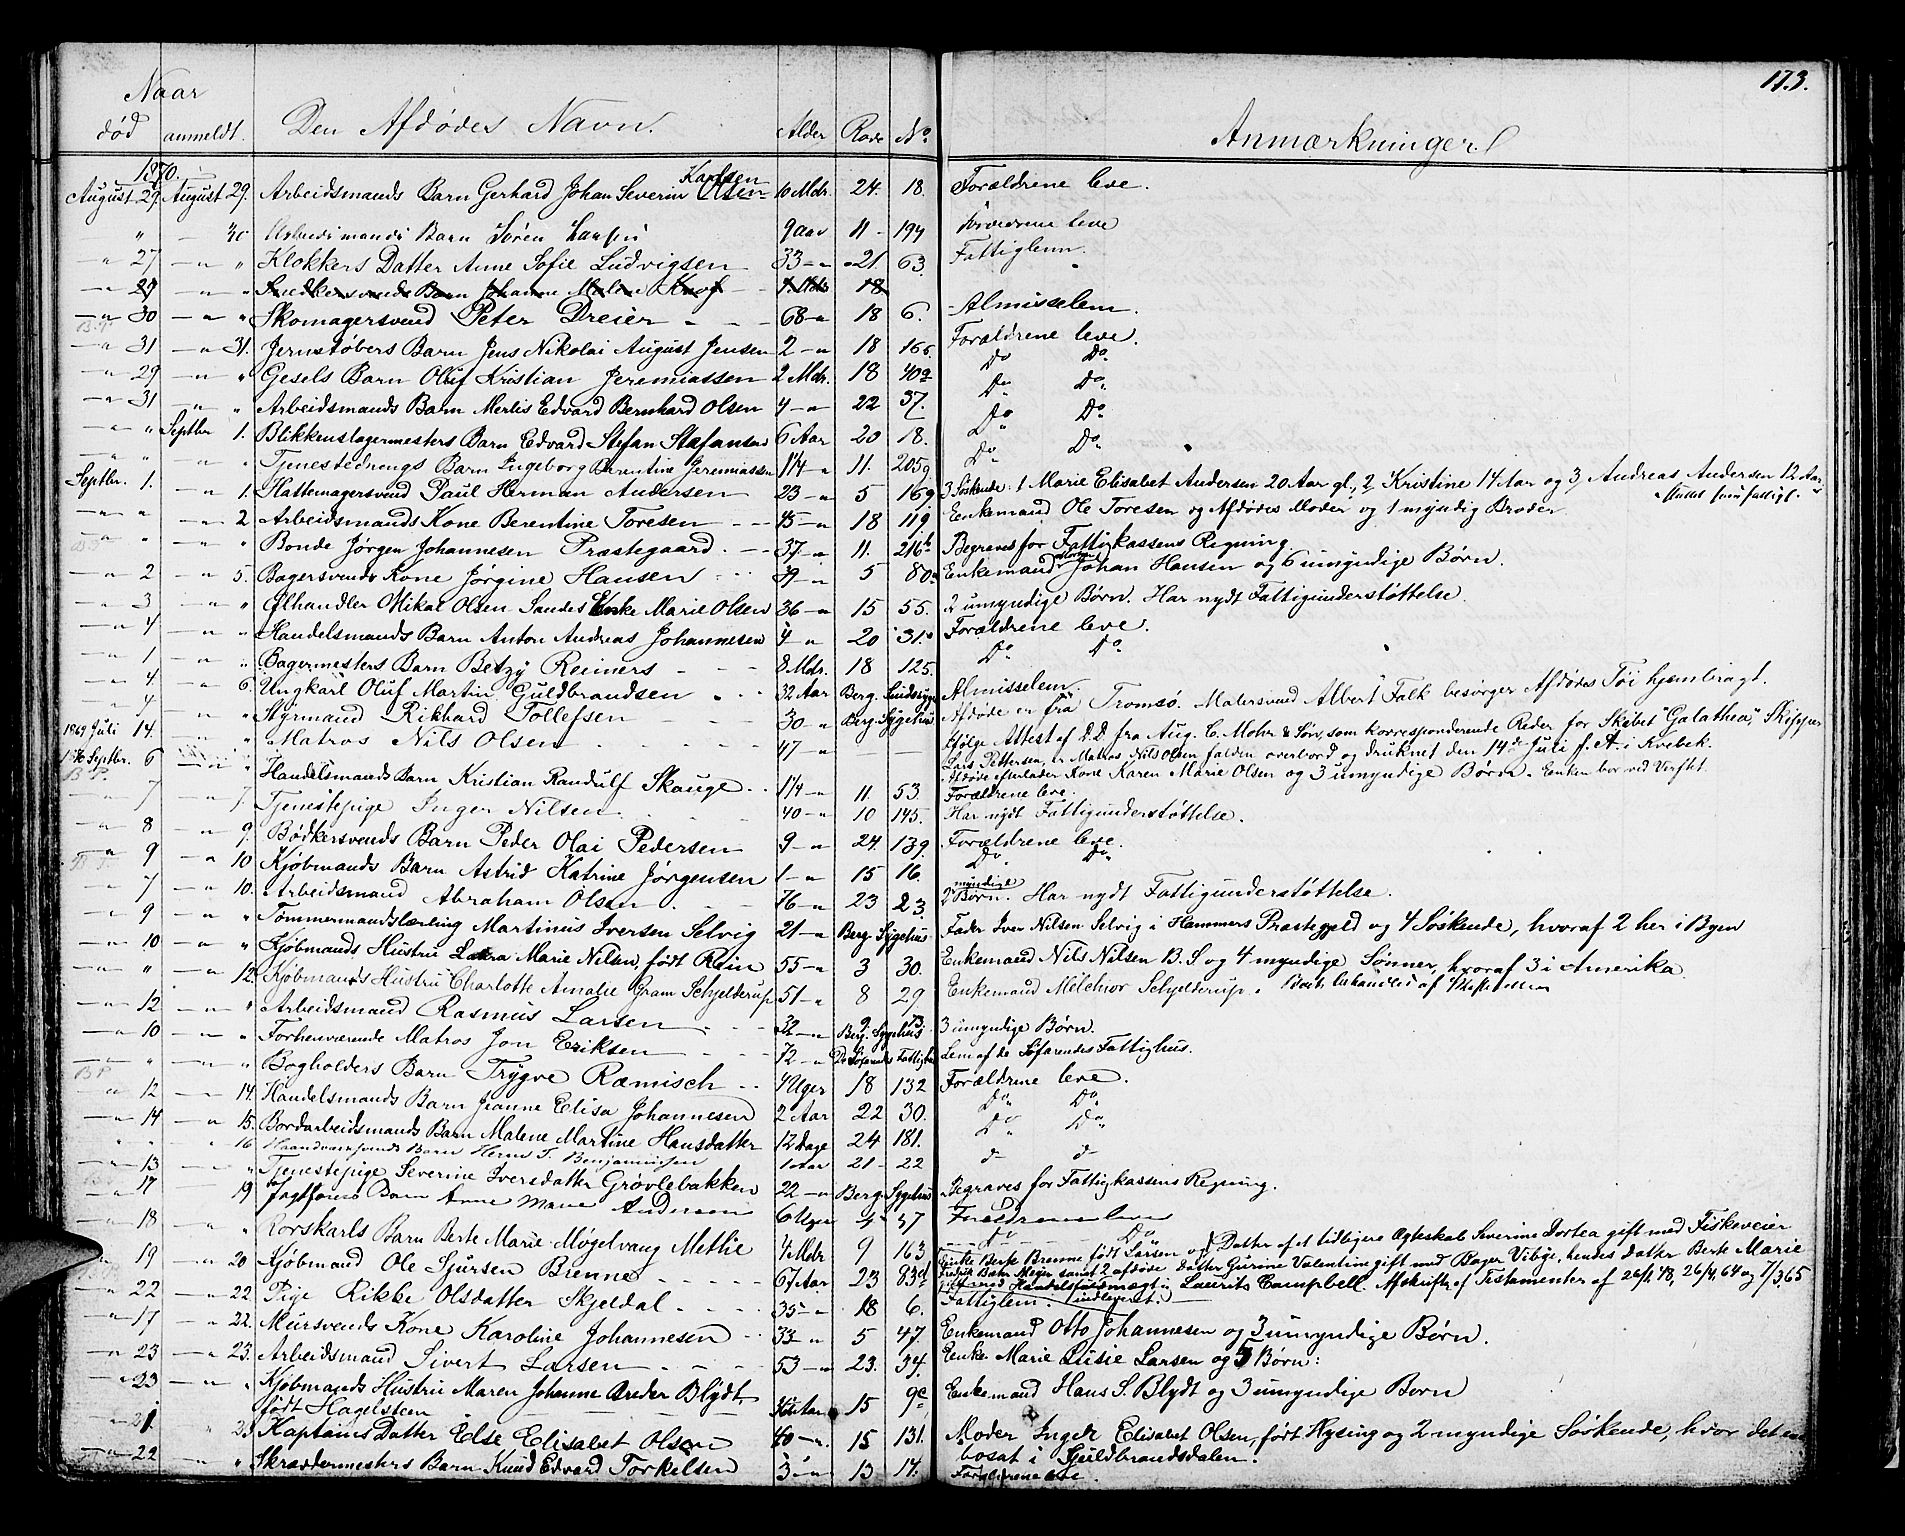 173.
Naar
død anmeldt. Den Afdødes Navn. Alder Rode No. Anmærkninger
1870.
August 29. August 29. Arbeidsmands Barn Gerhard Johan Severin Olsen Karlsen 10 Mdr. 24. 18. Forældrene leve.
" — 30 Arbeidsmands Barn Sören 9 aar 11 - 194 Forældrene leve
—"— 27 —"— " Klokkers Datter Anne Sofie Ludvigsen 33 —"— 21. 63. Fattiglem.
—"— 29 —"— " Snedkersvends Barn Johanne Malene Knof 18
—"— 30 —"— " Skomagersvend Peter Dreier 68 —"— 18 6. Almisselem.
—"— 31 —"— 31. Jernstøbers Barn Jens Nikolai August Jensen 2 —"— 18 Forældrene leve.
—"— 29 —"— " Gesels Barn Oluf Kristian Jeremiassen 2 Mdr. 18 40a Do Do
—"— 31 —"— " Arbeidsmands Barn Merlis Edvard Bernhard Olsen 4 —"— 22 37. Do Do
—"— " Septbr 1. Blikkenslagermesters Barn Edvard Stefan Stefansen 6 Aar 20 18. Do Do
—"— " —"— " Tjenestedrengs Barn Ingeborg Berentine Jeremiassen 1¼ —"— 11. 205a Do Do
Septbr. 1. —"— 1. Hattemagersvend Paul Herman Andersen 23 —"— 5 169 3 Søskende: 1 Marie Elisabet Andersen 20 Aar gl., 2, Kristine 14 Aar og 3, Andreas Andersen 12 Aar.
—"— " —"— 2. Arbeidsmands Kone Berentine Toresen 45 —"— 18 119. Enkemand Ole Toresen og Afdødes Moder og 1 myndig Broder
—"— " —"— " Bonde Jørgen Johannesen Præstegaard 37 —"— 11. 216b Begraves for Fattigkassens Regning
—"— 2 —"— 5. Bagersvends Kone Jørgine Hansen —"— 5 80 Enkemand Johan Hansen og 6 umyndige Børn.
—"— 3 —"— " Ølhandler Mikal Olsen Sandes Enke Marie Olsen 36 —"— 15 55. 2 umyndige Børn. Har nydt Fattigunderstøttelse.
—"— 4 —"— " Handelsmands Barn Anton Andreas Johannesen 4 —"— 20 31. Forældrene leve.
—"— 1 —"— " Bagermesters Barn Betzy Reiners 8 Mdr. 18 125. Do Do
—"— 4 —"— 6. Ungkarl Oluf Martin Guldbrandsen 32 Aar Berg. Almisselem.
—"— 4 —"— " Styrmand Rikhard Tollefsen 30 —"— Berg. Sygehus Afdøde er fra Tromsø. Malersvend Albert Falk besørger Afdødes Tøi hjembragt.
1869 Juli 14. —"— " Matros Nils Olsen 47 —"— Ifølge Attest af D.D. fra Aug. C. Mohr & Søn, som korresponderende Reder for Skibet "Galathea", Skipper
Lars Pettersen, er Matros Nils Olsen falden overbord og druknet den 14de Juli f. A. i Kvebek.
Afdøde efterlader Kone Karen Marie Olsen og 3 umyndige Børn. Enken bor ved Verftet.
Septbr. 6 —"— " Handelsmands Barn Kristian Randulf Skauge 1¼ —"— 11. 53. Forældrene leve.
—"— 7 —"— 7. Tjenestepige Inger Nilsen 40 —"— 10 145. Har nydt Fattigunderstøttelse.
—"— 8 —"— 9. Bødkersvends Barn Peder Olai Pedersen 9 —"— 24. 139. Forældrene leve.
—"— 9 —"— 10 Kjøbmands Barn Astrid Katrine Jørgensen 1 —"— 15 16. Do Do
—"— 7 —"— 10. Arbeidsmand Abraham Olsen 76 —"— 23 23. 2 myndige Børn. Har nydt Fattigunderstøttelse.
—"— 9 —"— " Tømmermandslærling Martinus Iversen Selvig 21 —"— Berg. Sygehus Fader Iver Nilsen Selvig i Hammers Præstegjeld og 4 Søskende, hvoraf 2 her i Byen
—"— 10 —"— " Kjøbmands Hustru Laura Marie Nilsen, født Rein 55 —"— 3 30. Enkemand Nils Nilsen B. S og 4 myndige Sønner, hvoraf 3 i Amerika.
—"— " —"— 12. Kjøbmands Hustru Charlotte Amalie Gram Schjelderup 51 —"— 8 29 Enkemand Melchior Schjelderup. Boet behandles af Skifteretten
—"— 12 —"— " Arbeidsmand Rasmus Larsen 32 —"— 3 umyndige Børn.
—"— 10 —"— " Forhenværende Matros Jon Eriksen 72 —"— Berg. Sygehus Lem af de Søfarendes Fattighus.
—"— " —"— " Bogholders Barn Trygve Ræmisch 4 Uger 18 132 Forældrene leve.
—"— 12 —"— 14. Handelsmands Barn Jeanne Elisa Johannesen 2 Aar 22 30. Do Do
—"— 14 —"— 15. Bordarbeidsmands Barn Malene Martine Hansdatter 12 Dage 24 181. Do Do
" " " 16 Haandværksvends Barn Herm. T. Benjaminsen 1 Aar 21 - 22 d- d-
—"— 13 —"— " Tjenestepige Severine Iversdatter Grøvlebakken 22 —"— Berg. Sygehus Begraves for Fattigkassens Regning.
—"— 17 —"— 19 Barn Anne Marie Andersen 6 Uger 37 Forældrene leve
—"— 18 —"— " Rorskarls Barn Berte Marie Møgelvang Methie 4 Mdr 9 163 Do Do
—"— 19 —"— 20 Kjøbmand Ole Sjursen Brenne 67 Aar 23 93d Enke Berte Brenne født Larsen og Datter af et tidligere Ægteskab Severine Dortea gift med Fiskeveier
samt 2 afdøde Datter Gurine Valentin gift med Bager Vibye, hendes Datter Berte Marie
Laurits Campbell. Afskrift af Testamenter af 26/1 48, 26/4 64 og 7/3 65 indleveret.
—"— 22 —"— 22. Pige Rikke Olsdatter Skjeldal 35 —"— 18 6. Fattiglem.
—"— 17 —"— 22. Mursvends Kone Karoline Johannesen 33 —"— 5 47. Enkemand Otto Johannesen og 3 umyndige Børn.
—"— 23 —"— 23. Arbeidsmand Sivert Larsen 53 —"— 23. 34. Enke Marie Lisie Larsen og 5 Børn:
—"— 23 —"— " Kjøbmands Hustru Maren Johanne Breder Blydt, født Hagelsteen Aar 15 9c Enkemand Hans S. Blydt og 3 umyndige Børn
—"— 21. " 23 Kaptains Datter Else Elisabet Olsen 40 —"— 15 131. Moder Inger Elisabet Olsen, født Hysing og 2 myndige Søskende, hvor det ene
bosat i Guldbrandsdalen.
—"— 22 —"— " Skræddermesters Barn Knud Edvard Torkelsen 3 —"— 13 14. Forældrene leve.